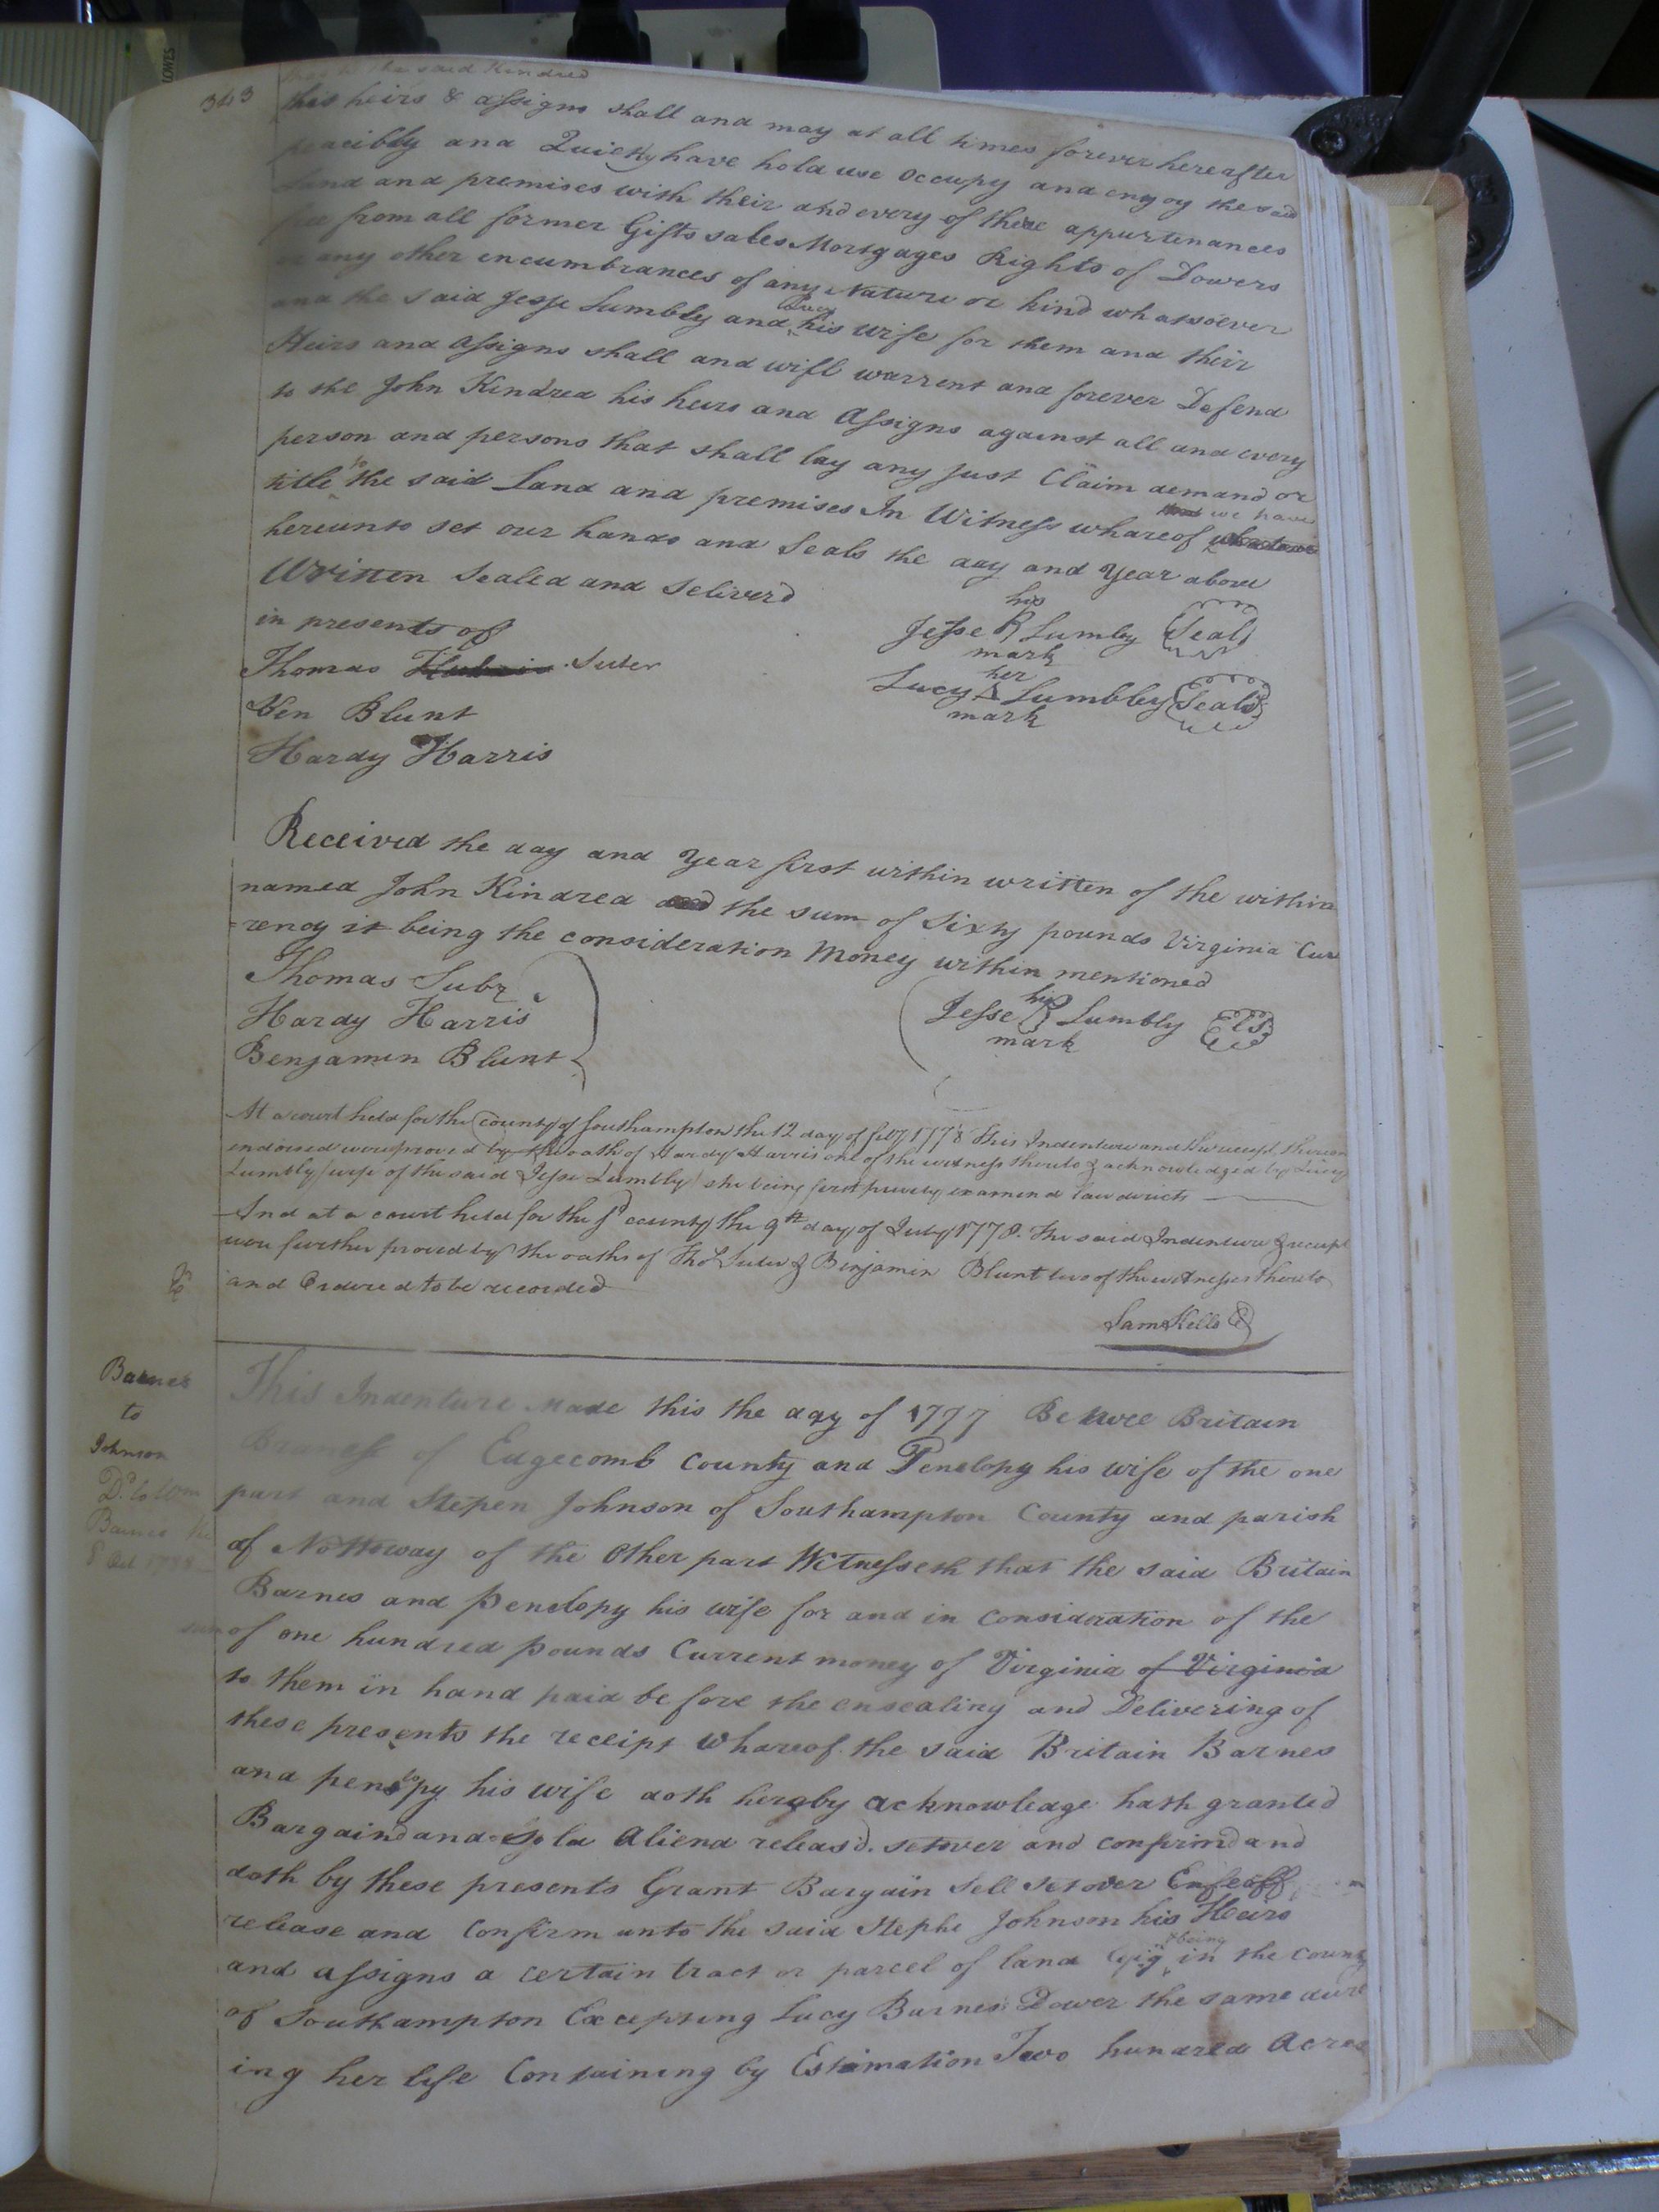 343
the said Kindred
his heirs & assigns shall and may at all times forever hereafter
peacibly and Quietly have hold use occupy and enjoy the said
Land and premises with their and every of there appurtenances
free from all former Gifts sales Mortgages Rights of Dowers
or any other incumbrances of any Nature or kind whatsoever
and the said Jesse Lumbly and Lucy his wife for them and their
Heirs and assigns shall and will warrent and forever Defend
to the John Kindred his heirs and Assigns against all and every
person and persons that shall lay any just Claim demand or
title to the said Land and premises In Witness whareof we have
hereunto set our hands and Seals the day and year above
Written Sealed and Deliverd
in presents of
Thomas Suter
Ben Blunt
Hardy Harris
his
Jesse R Lumbly Seal
mark
her
Lucy Lumbley Seal
mark
Received the day and year first within written of the within
named John Kindred the sum of Sixty pounds Virginia Cur
=rency it being the consideration Money within mentioned
Thomas Subr
Hardy Harris
Benjamin Blunt
his
Jesse R Lumbly LS
mark
At a court held for the county of Southampton the 12 day of feby 1778 This Indenture and the receipt thereon
endorsed were proved by the oath of Hardy Harris one of the witness thereto & acknowledged by Lucy
Lumbly wife of the said Jesse Lumbly she being first privily examined law directs
And at a court held for the sd county the 9th day of July 1778. The said Indenture & receipt
were further proved by the oaths of Thos Suter & Benjamin Blunt two of the witnesses thereto
and Ordered to be recorded
Sam Kello
Barnes
to
Johnson
Dd to
Barnes
8 Oct
This Indenture Made this the day of 1777 Betwee Britain
Braness of Edgecomb County and Penelopy his wife of the one
part and Stepen Johnson of Southampton County and parish
of Nottoway of the Other part Witnesseth that the said Britain
Barnes and Penelopy his wife for and in Consideration of the
sum of one hundred pounds Current money of Virginia of Virginia
to them in hand paid before the ensealing and Delivering of
these presents the receipt whareof the said Britain Barnes
and penelopy his wife doth hereby acknowledge hath granted
Bargaind and Sold Aliend releasd. setover and confirmd and
doth by these presents Grant Bargain Sell set over Enfeoff
release and Confirm unto the said Stephe Johnson his Heirs
and assigns a certain tract or parcel of land lyig & being in the County
of Southampton Excepting Lucy Barnes Dower the same dure
ing her life Containing by Estimation Two hundred Acres